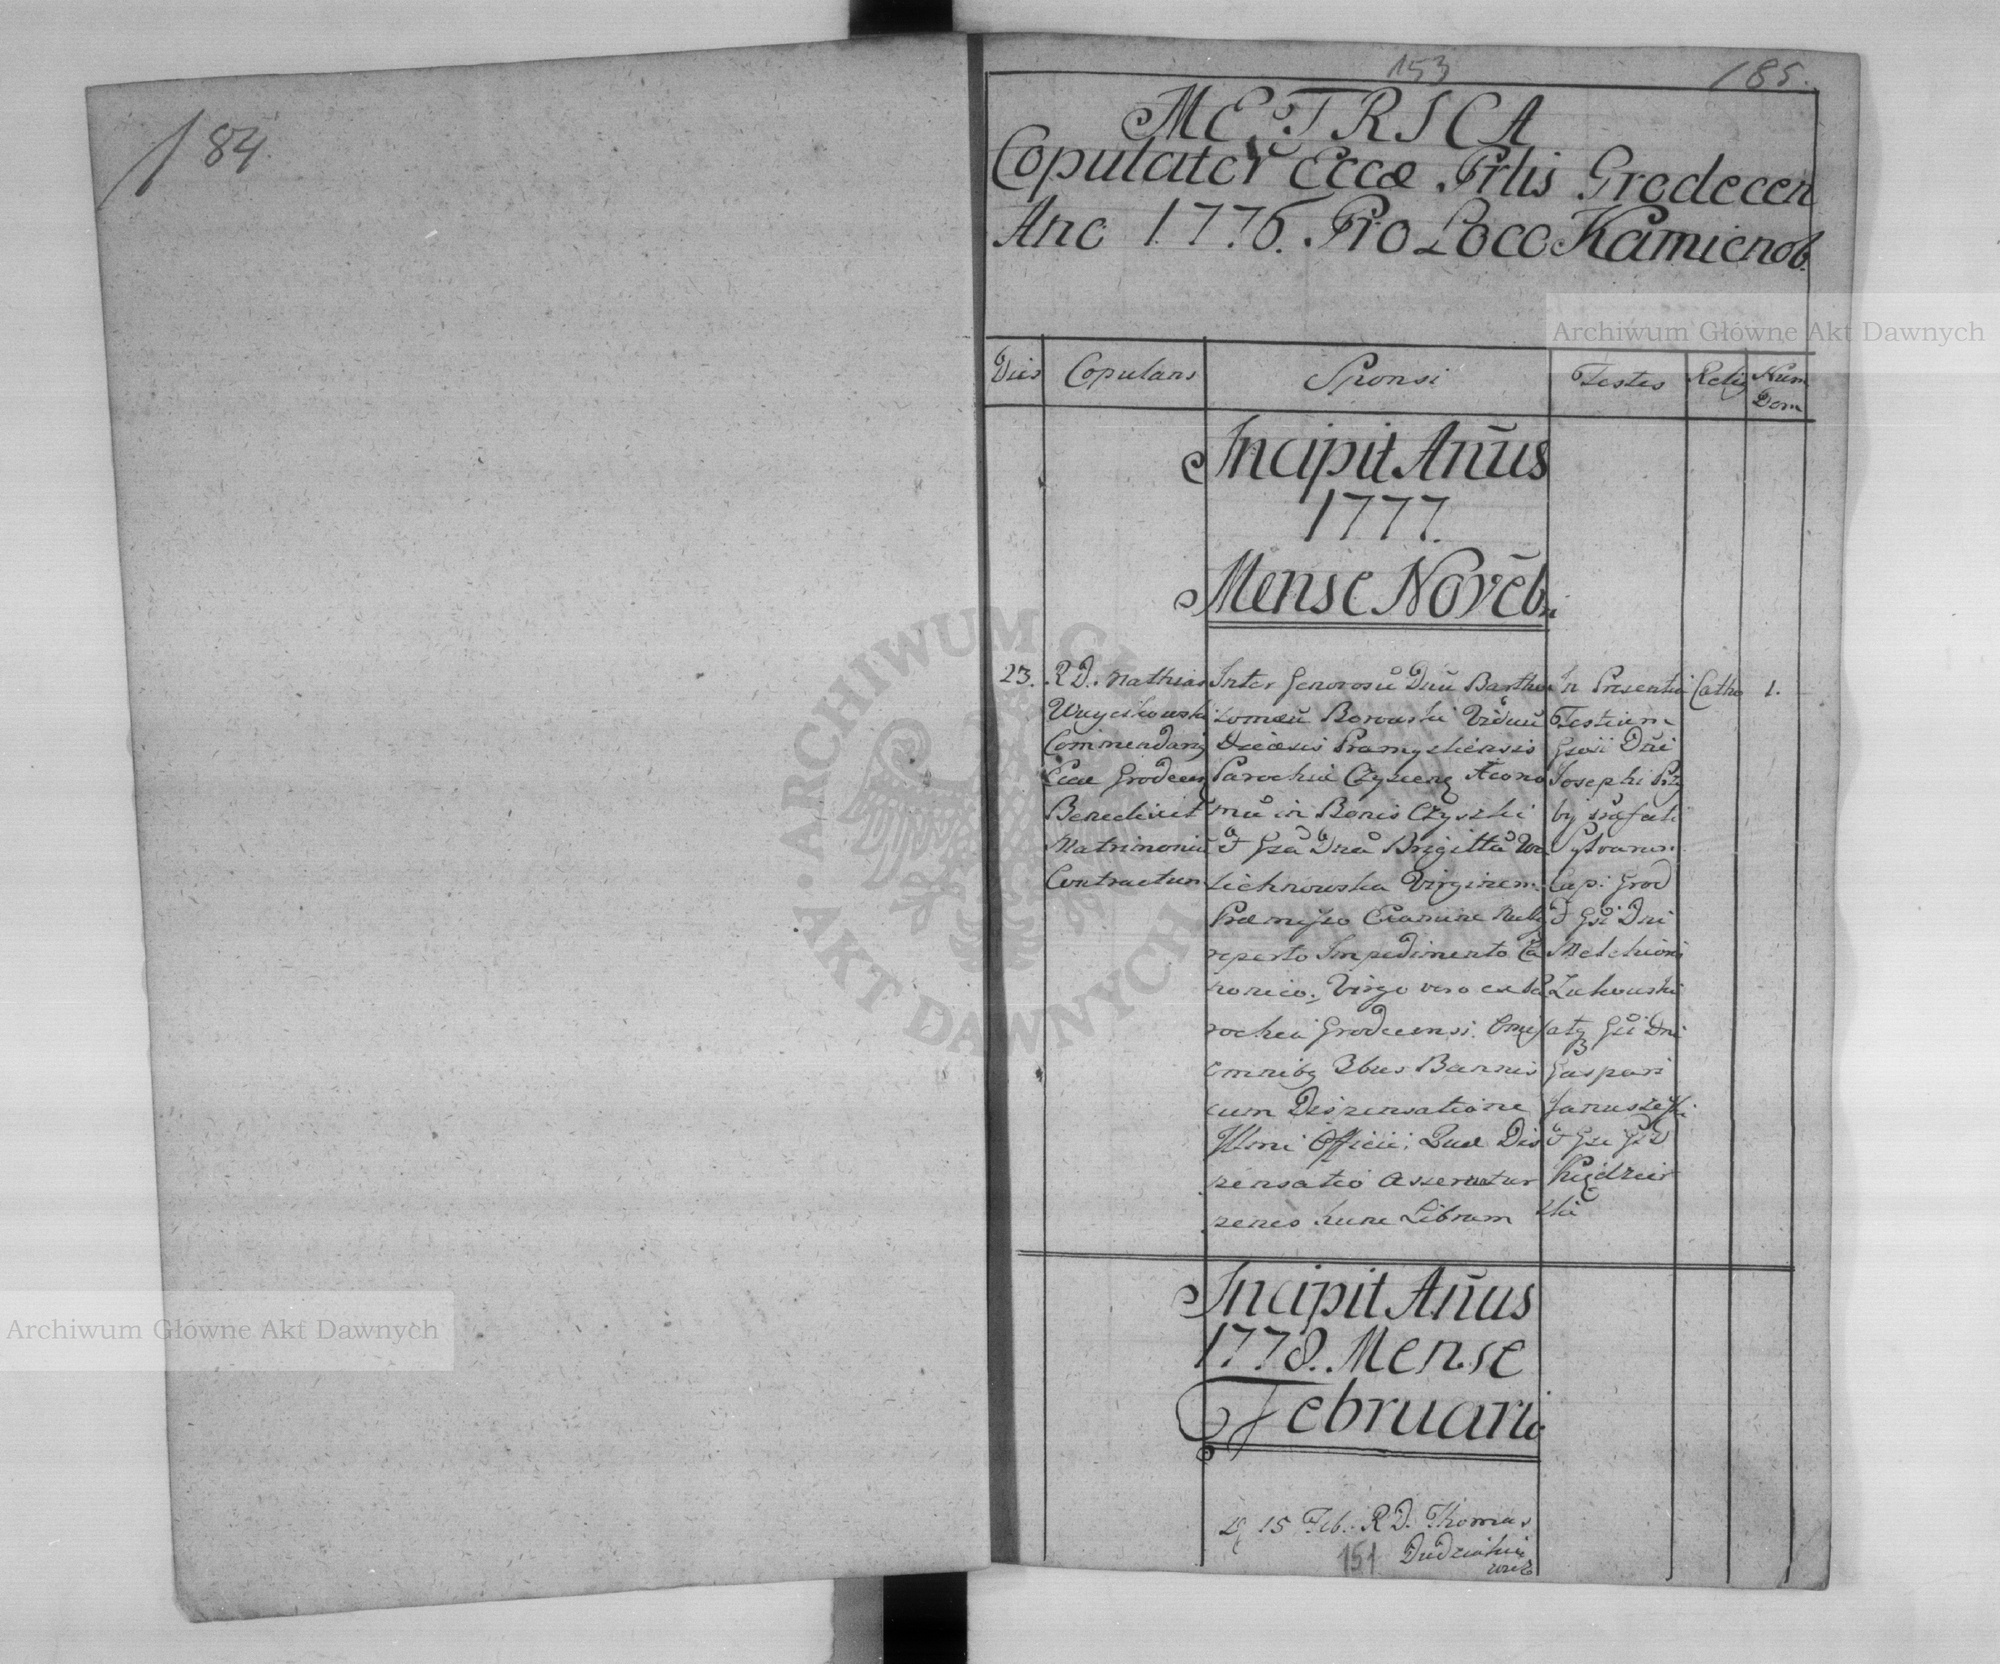 184.
153
185.
METRICA
Copulator Eccæ Prlis Grodecen
Ano 1776. Pro Loco Kamienob.
Dies Copulans Sponsi Testes Relig Num Dom
Incipit Anũus
1777.
Mense Novēb.
23. R.D. Mathias
Commendarij
Eccæ Grodecen
Benedixit
Matrimoniũ
Contractum
Inter Generosũ Dnũ Bartho
lomæũ Borowski Viduũ
Diecesis Præmysliensis
Parochiæ Czyscens Æcono
mũ in Bonis Czyszki
& Gsã Dnã Brigittã Wo
lichnowska Virginem
Præmisso Examine Nullq
reperto Impedimento Ca
nonico, Virgo vero ex Pa
rochia Grodecensi. Omis
omnibq 3bus Bannis
cum Dispensatione
Illmi Officii; Quæ Dis
pensatio asservatur
penes hunc Librum
In Presentia
Testium
Gsoři Dni
Josephi
Cap: Grod
& Gsi Dni
Melchiori
Zukowski
Gsi Dni
Gaspari
Januszewski
& Gsi
Catho 1.
Incipit Anũus
1778. Mense
Februario
15 Feb. R.D. Thomas
151
Archiwum Główne Akt Dawnych
Archiwum Główne Akt Dawnych